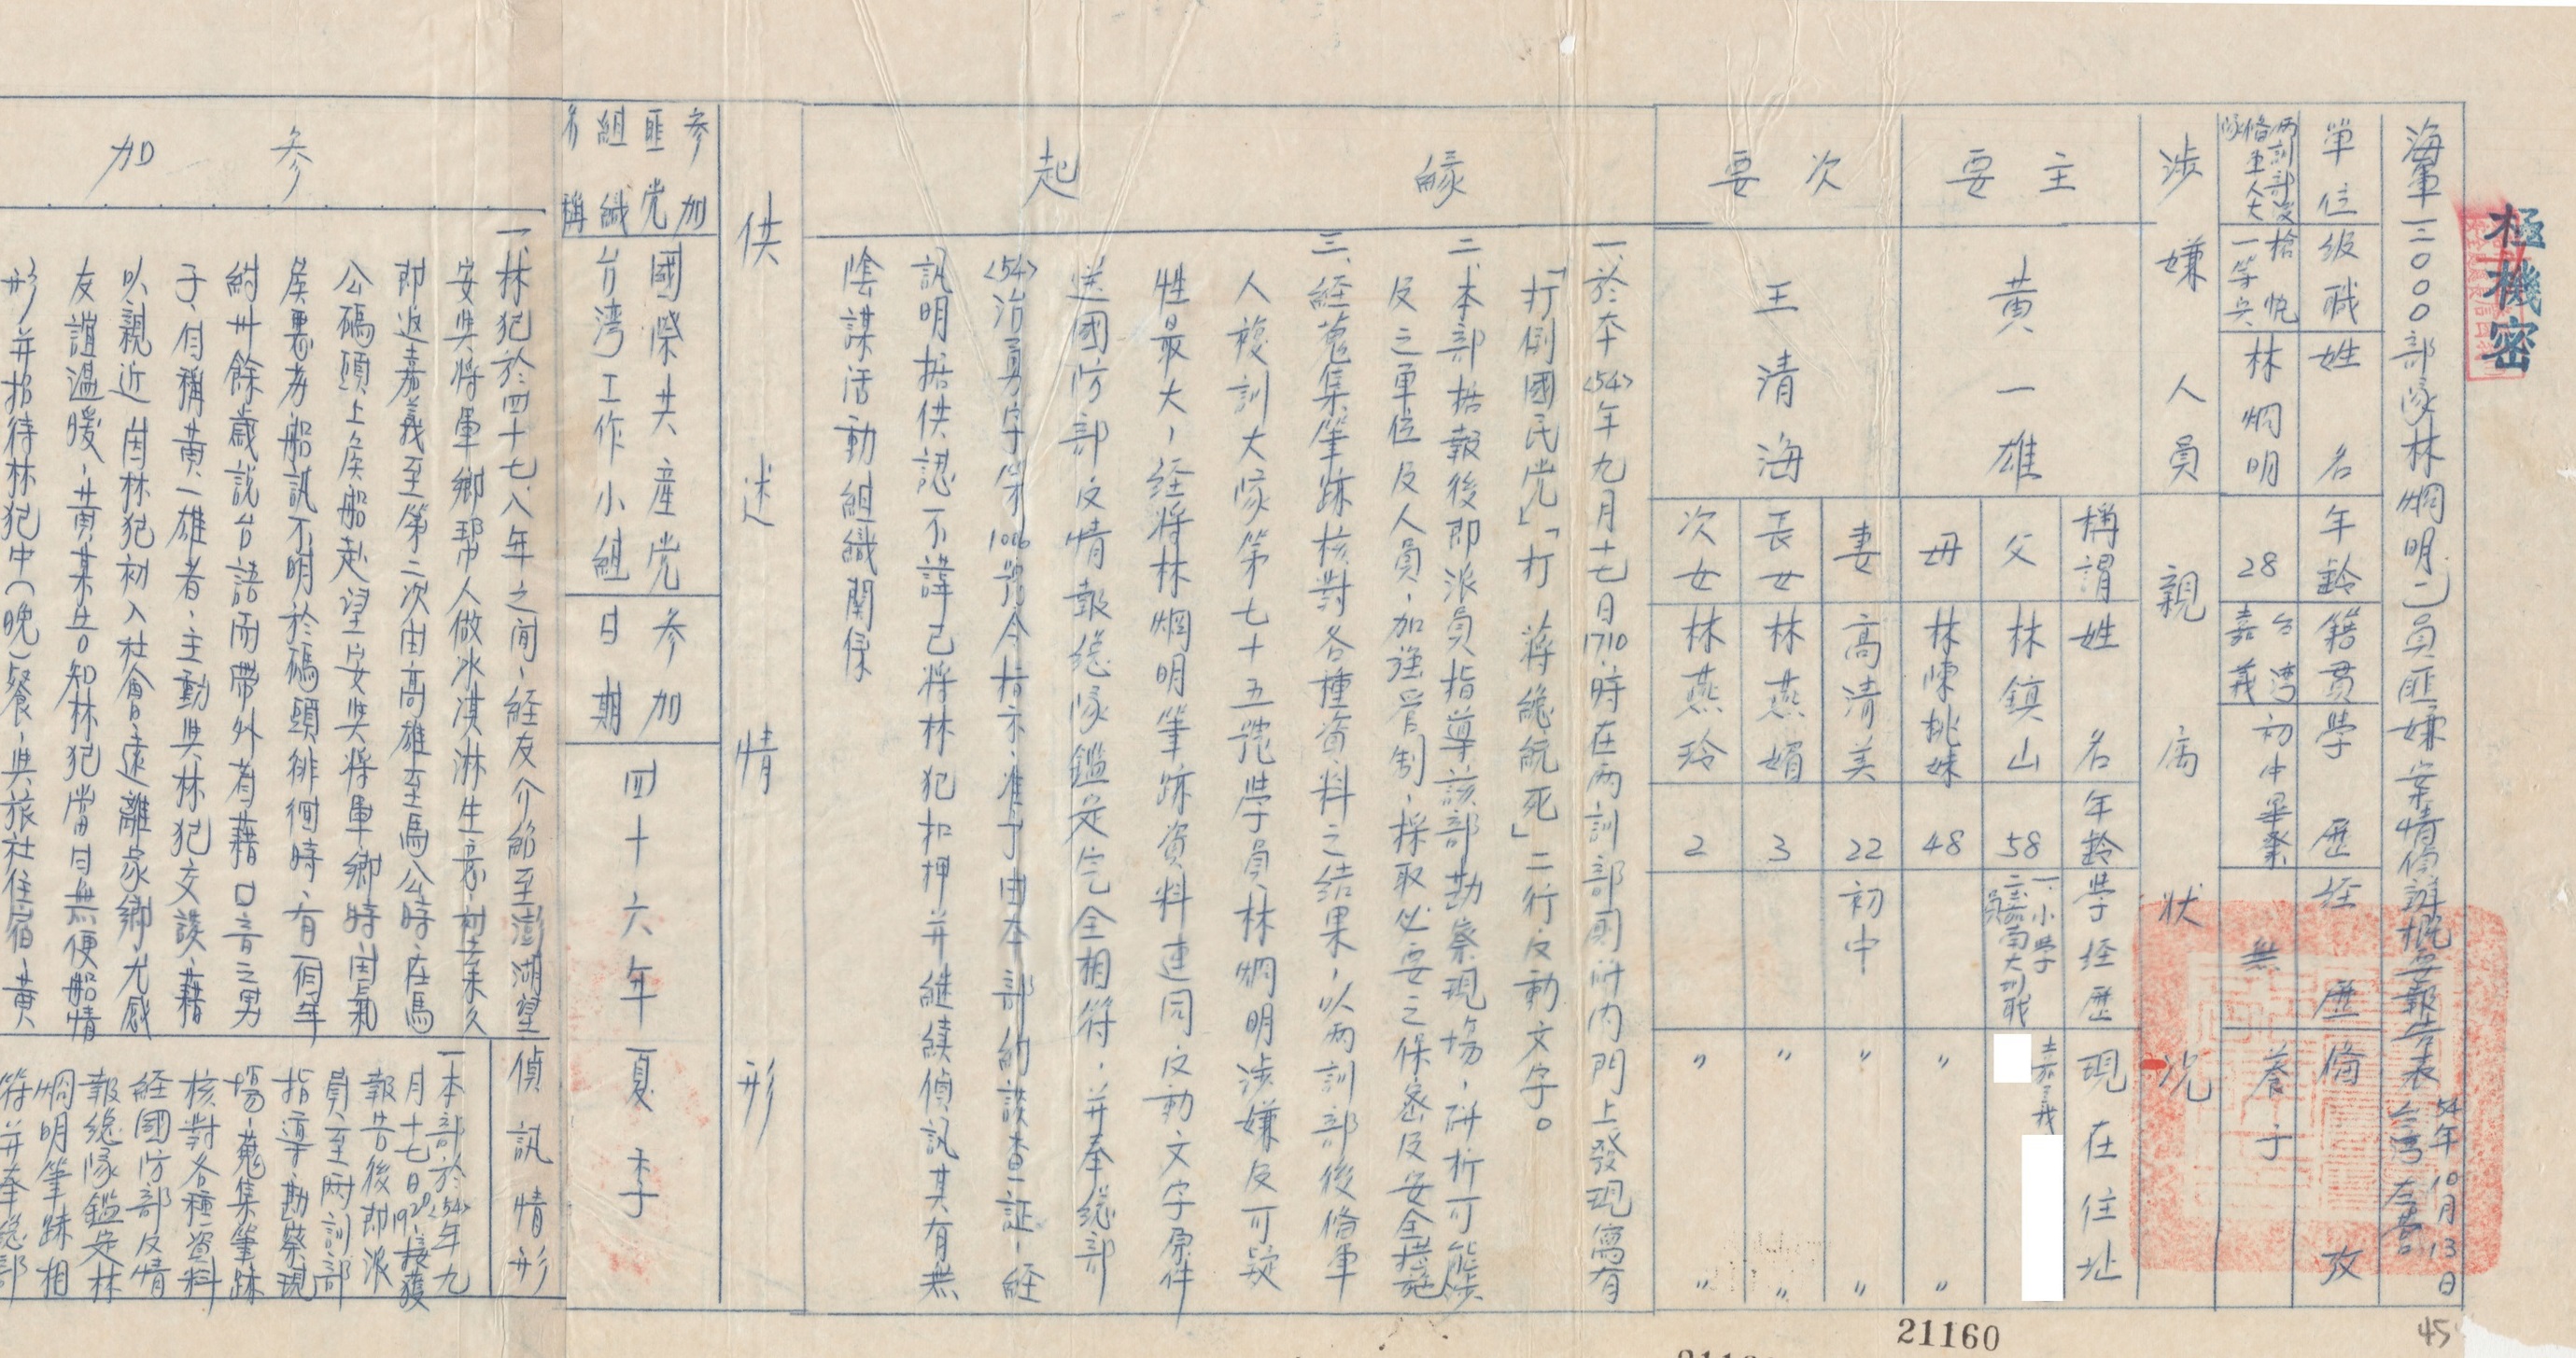 極機密
海軍三〇〇〇部隊林炯明乙員匪嫌案情偵詳概要報告表
54年10月13日
台灣左營
單位
級職
姓名
年齡
籍貫
學歷
經歷
備攷
兩訓部後備軍人大隊
槍帆一等兵
林炯明
28
台灣嘉義
初中畢業
無
養子
涉嫌人員
親屬狀況
主要
黃一雄
次要
王清海
稱謂
姓名
年齡
學經歷
現在住址
父
林鎮山
58
一、小學
嘉義
母
林陳桃妹
48
〃
〃
妻
高清美
22
初中
〃
〃
長女
林燕媚
3
〃
〃
次女
林燕玲
2
〃
〃
緣起
一、於本<54>年九月十七日1710時在兩訓部厠所內門上發現寫有
「打倒國民党」「打蔣總統死」二行反動文字。
二、本部据報後即派員指導該部勘察現場，研析可能涉
及之單位及人員，加強管制，採取必要之保密及安全措施
三、經蒐集筆跡核對各種資料之結果，以兩訓部後備軍
人複訓大隊第七十五號學員林炯明涉嫌及可疑
性最大，經將林炯明筆跡資料連同反動文字原件
送國防部反情報總隊鑑定完全相符，并奉總部
<54>治勇字第1006號令指示，准予由本部約談查証，經
訊明据供認不諱已將林犯扣押并継續偵訊其有無
陰謀活動組織關係
供述情形
參加匪党組織名稱
國際共產党
台灣工作小組
參加日期
四十六年夏季
參加
一、林犯於四十七、八年之間，經友介紹至澎湖望
安與將軍鄉幫人做冰淇淋生意，初去未久
即返嘉義至第二次由高雄至馬公時在馬
公碼頭上候船赴望安與將軍鄉時因氣
候惡劣船訊不明於碼頭徘徊時，有一個年
約卅餘歲說台語而帶外省藉口音之男
子，自稱黃一雄者，主動與林犯交談，藉
以親近因林犯初入社會遠離家鄉尤感
友誼溫暖，黃某告知林犯當日無便船情
形并招待林犯中(晚)餐，與旅社住宿，黃
偵訊情形
一、本部於<54>年九
月十七日1920接獲
報告後即派
員至兩訓部
指導勘察現
場，蒐集筆跡
核對各種資料
經國防部反情
報總隊鑑定林
炯明筆跡相
符并奉總部
21160
45